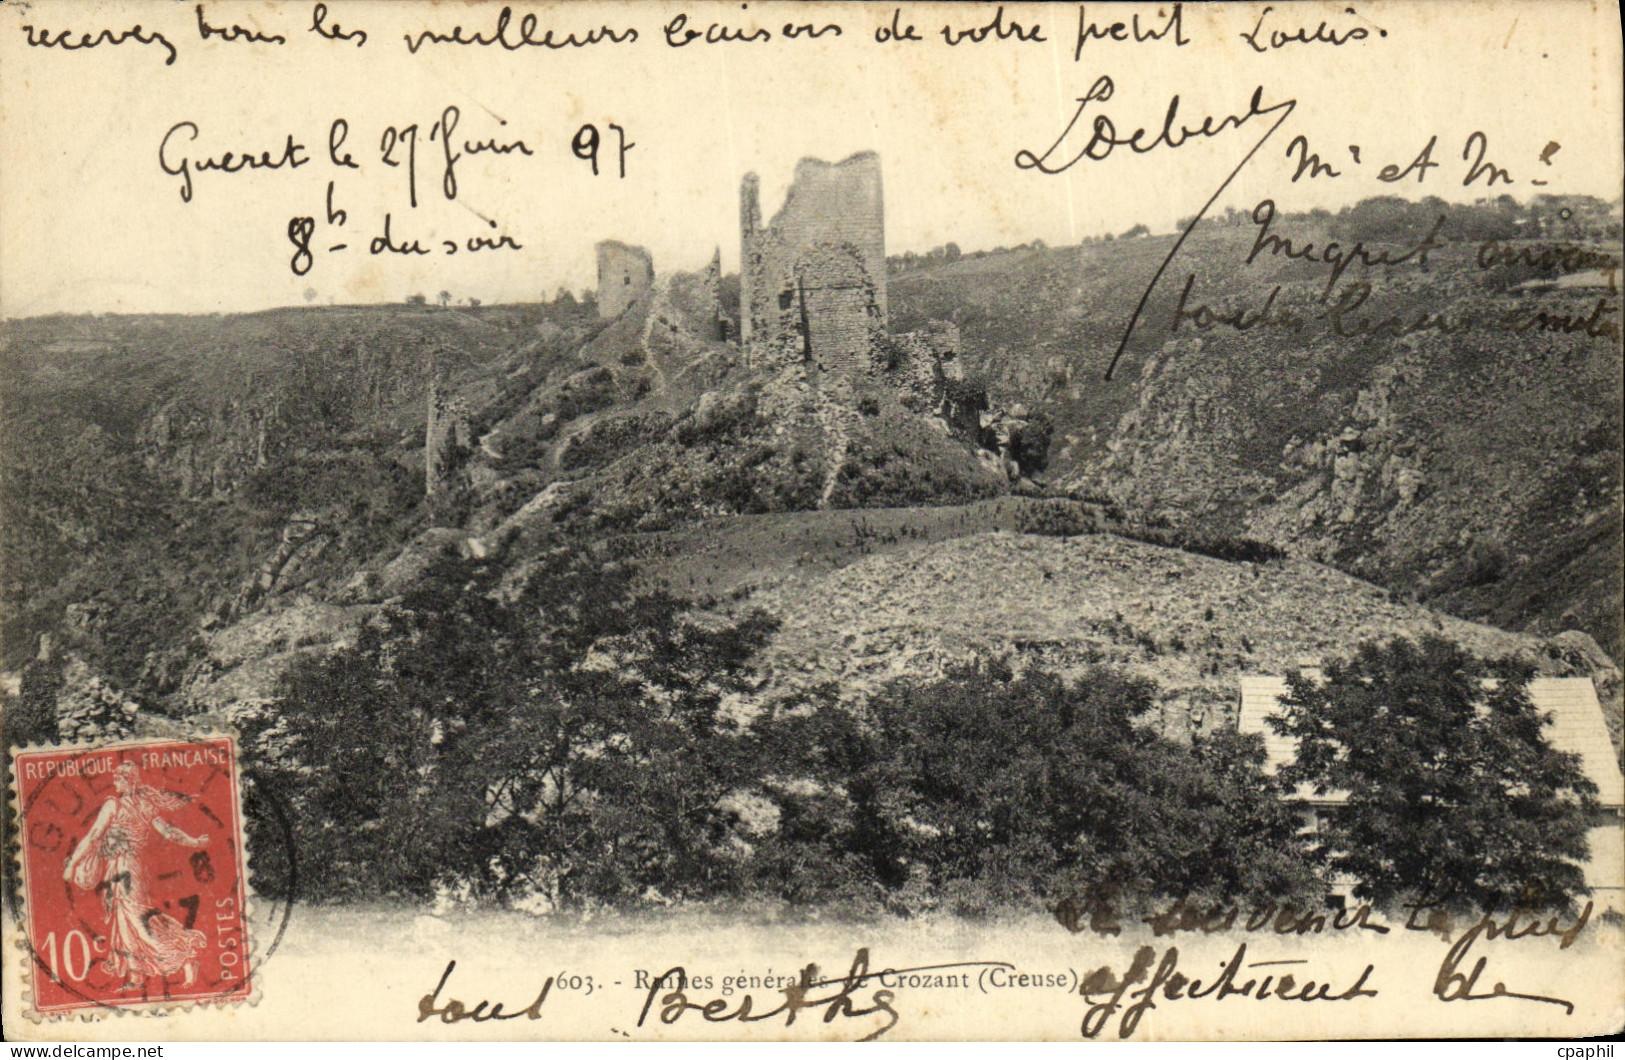 recevez tous les meilleurs baisers de votre petit Louis.
Gueret le 27 Juin 07
8h du soir
Mr et Me
Megret
toutes leurs amities
REPUBLIQUE FRANÇAISE
GUERET
10c
POSTES
CREUSE
Le souvenir le plus
603. - Ruines générales de Crozant (Creuse)
affectueux de
tout Berthe
cpaphil